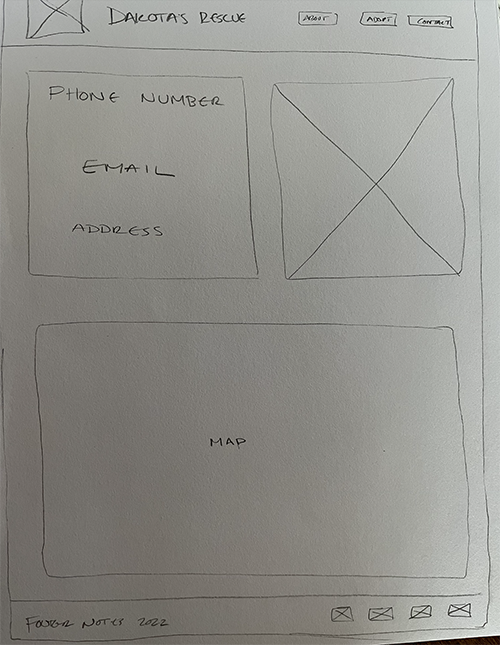 DAKOTA'S RESCUE ABOUT ADOPT CONTACT
PHONE NUMBER
EMAIL
ADDRESS
MAP
FOOTER NOTES 2022